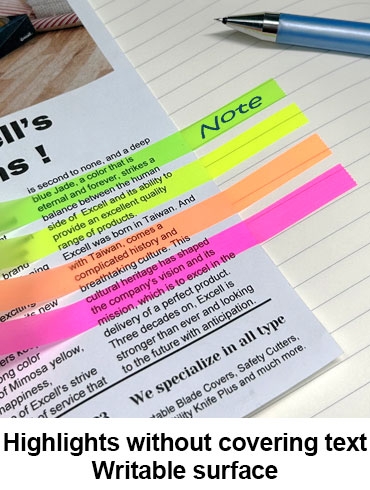 Note
ell's
ns !
is second to none, and a deep
blue Jade, a color that is
eternal and forever, strikes a
balance between the human
side of Excell and its ability to
provide an excellent quality
range of products.
Excell was born in Taiwan. And
with Taiwan, comes a
complicated history and
breathtaking culture. This
cultural heritage has shaped
the company's vision and its
mission, which is to excel in the
delivery of a perfect product.
Three decades on, Excell is
stronger than ever and looking
to the future with anticipation.
We specialize in all type
table Blade Covers, Safety Cutters,
ility Knife Plus and much more.
brand
ning
exciting
s new
ers
ong color
of Mimosa yellow,
happiness,
n of Excell's strive
of service that
Highlights without covering text
Writable surface